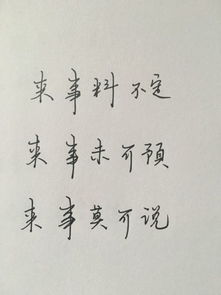 来事料不定
来事未可预
来事莫可说